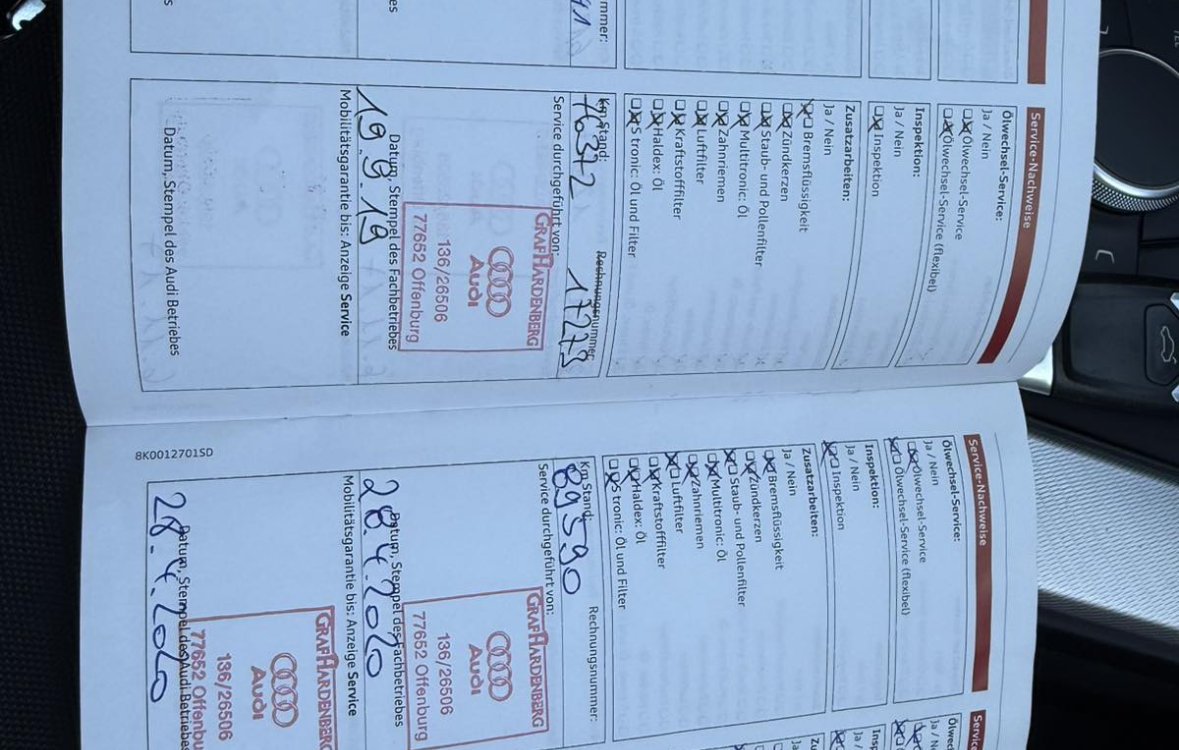 Service-Nachweise
Ölwechsel-Service:
Ja / Nein
Ölwechsel-Service
Ölwechsel-Service (flexibel)
Inspektion:
Ja / Nein
Inspektion
Zusatzarbeiten:
Ja / Nein
Bremsflüssigkeit
Zündkerzen
Staub- und Pollenfilter
Multitronic: Öl
Zahnriemen
Luftfilter
Kraftstofffilter
Haldex: Öl
S tronic: Öl und Filter
km Stand: Rechnungsnummer:
76372
Service durchgeführt von:
GRAF HARDENBERG
Audi
136/26506
77652 Offenburg
19.9.19
Datum, Stempel des Fachbetriebes
Mobilitätsgarantie bis: Anzeige Service
Datum, Stempel des Audi Betriebes
8K0012701SD
Service-Nachweise
Ölwechsel-Service:
Ja / Nein
Ölwechsel-Service
Ölwechsel-Service (flexibel)
Inspektion:
Ja / Nein
Inspektion
Zusatzarbeiten:
Ja / Nein
Bremsflüssigkeit
Zündkerzen
Staub- und Pollenfilter
Multitronic: Öl
Zahnriemen
Luftfilter
Kraftstofffilter
Haldex: Öl
S tronic: Öl und Filter
Km Stand: Rechnungsnummer:
89590
Service durchgeführt von:
GRAF HARDENBERG
Audi
136/26506
77652 Offenburg
28.4.2020
Datum, Stempel des Fachbetriebes
Mobilitätsgarantie bis: Anzeige Service
GRAF HARDENBERG
Audi
136/26506
77652 Offenbu
28.4.2020
Datum, Stempel des Audi Betriebes